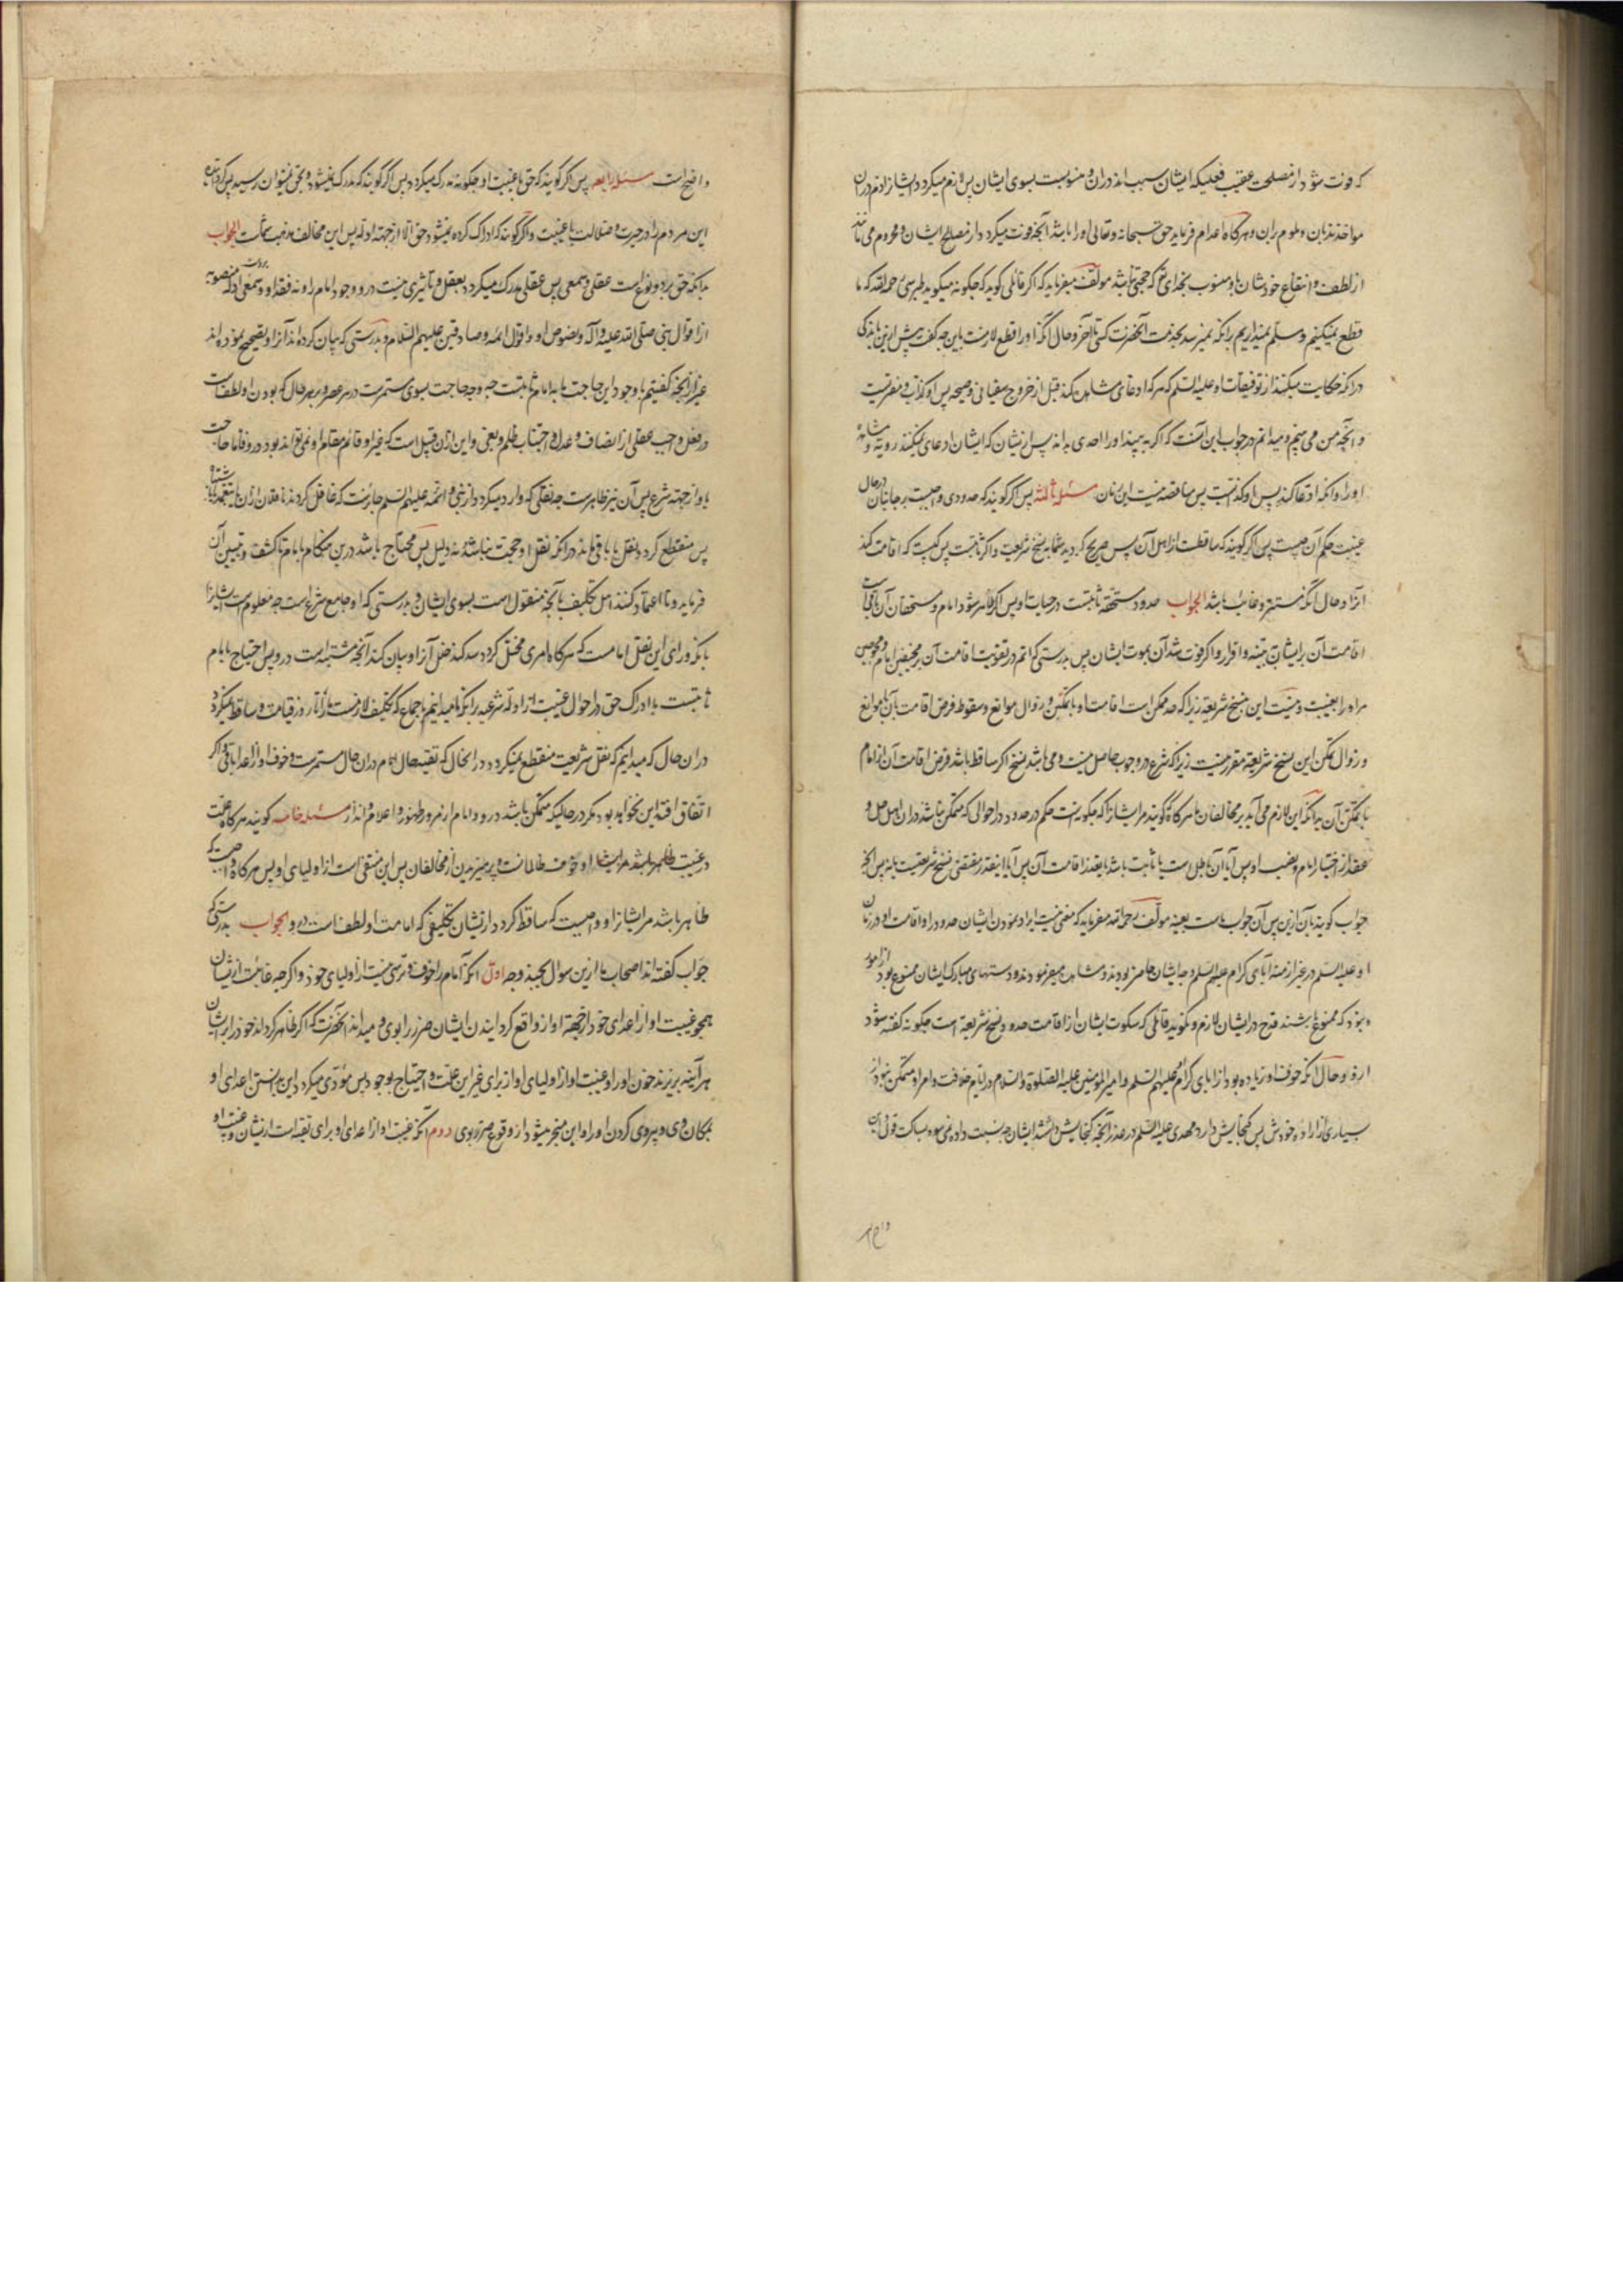 که فوت شود از مصلحت عقیب فعلیکه ایشان سبب اند دران و منسوبست بسوی ایشان پس لازم میکردد ایشانرا ذم دران
مواخذند بان و ملوم بران و هرکاه اعدام فرماید حق سبحانه و تعالی او را باشد آنچه فوت میکردد از مصالح ایشان و محروم می مانند
از لطف و انتفاع خودشان باو منسوب بخدای که حجتی باشد مولف میفرماید که اکر قائلی کوید که چکونه میکوید طبرسی رحمه الله که ما
قطع نمیکنیم و مسلم نمیداریم برانکه نمیرسد بخدمت آنحضرت کسی تا آخر و حال آنکه او را قطع لازمست باین چه کفت پیش ازین باندکی
درانکه حکایت میکند از توقیعات او علیه السلم که هرکه ادعای مشاهده کند قبل از خروج سفیانی و صیحه پس او کذاب و مفتریست
و آنچه من می بینم و میدانم در جواب این آنست که اکر به بیند او را احدی بداند پس از نشان که ایشان ادعای نمیکنند رویة و مشاهده
او را و آنکه ادعا کند پس او کذابست پس مناقضه نیست این زمان مسئله ثالثه پس اکر کویند که حدودی واجبست بر جانیان در حال
غیبت حکم آن چیست پس اکر کویند که ساقطست از اهل آن پس صریح کردید شما به نسخ شریعت و اکر ثابتست پس کیست که اقامت کند
آنرا و حال آنکه مستتر و غائب باشد الجواب حدود مستحقه ثابتست در جنایات او پس اکر ظاهر شود امام و مستحقان آن باقی است
اقامت آن بر ایشان به بینه و اقرار و اکر فوت شد آن بموت ایشان پس بدرستی که اثم در تفویت اقامت آن بر مخیفین امام و محوجین
مر او را بغیبت و نیست این بنسخ شریعة زیرا که حد ممکن است اقامت او با تمکن و زوال موانع و سقوط فرض اقامت بان با موانع
و زوال تمکن این نسخ شریعة مقرر نیست زیرا که شرع در وجوب حاصل نیست و می باشد نسخ اکر ساقط باشد فرض اقامت آن از امام
با تمکن آن به آنکه این لازم می آید بر مخالفان ما هرکاه کویند مر ایشانرا که چکونست حکم در حدود در احوالی که متمکن نباشد دران اهل حل و
عقد از اختیار امام و نصب او پس آیا آن باطل است یا ثابت باشد با تعذر اقامت آن پس آیا اینقدر مقتضی نسخ شریعت یا نه پس آنچه
جواب کویند بان ازین پس آن جواب ماست بعینه مولف رحمه الله میفرماید که معنی نیست ایراد نمودن ایشان حدود را و اقامت او در زمان
او علیه السلم در غیر ازمنه آبای کرام علیهم السلم و چه ایشان حاضر بودند و مشاهده میفرمودند و دستهای مبارک ایشان ممنوع بود از امور
و نبود که ممنوع باشند قدح در ایشان لازم و نکوید قائلی که سکوت ایشان از اقامت حدود نسخ شریعة است چکونه کفته شود
ارو و حال آنکه خوف او زیاده بود از ابای کرام علیهم السلم و امیر المومنین علیه الصلوة و السلام در ایام خلافت و امر او متمکن نبود از
بسیاری از اراده خودش پس کنجایش دارد مهدی علیه السلم در عذر آنچه کنجایش داشت ایشانرا چه نسبت داده نمیشود بساکت قولی این
واضح است
واضح است مسئله رابعه پس اکر کویند که حق با غیبت او چکونه مدرک میکردد پس اکر کویند که مدرک نمیشود و بحق نمیتوان رسید پس
این مردم را در حیرت و ضلالت با غیبت و اکر کویند که ادراک کرده نمیشود حق الا از جهة ادله پس این مخالف مذهب شماست الجواب
بدانکه حق بر دو نوع است عقلی و سمعی پس عقلی مدرک میکردد بعقل و تاثیری نیست درو وجود امام را و نه فقد او و سمعی ادله منصوبه
از اقوال نبی صلی الله علیه و آله و نصوص او و اقوال ائمه و صادقین علیهم السلام و بدرستی که بیان کرده اند آنرا و تصحیح نموده اند
غیر از آنچه کفتیم با وجود این حاجت ما به امام ثابتست چه وجه حاجت بسوی مستمرست در هر عصر و بهر حال که بودن او لطفست
در فعل واجب عقلی از انصاف و عدل و اجتناب ظلم و بغی و این ازان قبیل است که غیر او قائم مقام او نمی تواند بود درو فاما حاجت
باو از جهة شرع پس آن نیز ظاهرست چه نقلی که وارد میکردد از نبی و ائمه علیهم السلم جائزست که غافل کردند ناقلان ازان یا بتعمد
پس منقطع کردد نقل یا باقی ماند درانکه نقل او حجت نباشد نه دلیل پس محتاج باشد درین هنکام بامام تا کشف و تبیین آن
فرماید و تا اعتماد کنند اهل تکلیف بآنچه منقول است بسوی ایشان و بدرستی که او جامع شرع است چه معلوم است ایشانرا
بانکه ورای این نقل امامست که هرکاه امری مختل کردد سد کند خلل آنرا و بیان کند آنچه مشتبه است درو پس احتیاج بامام
ثابتست با ادراک حق در احوال غیبت از ادله شرعیه برانکه ما میدانیم باجماع که تکلیف لازمست ما را تا روز قیامت و ساقط نمیکردد
دران حال که میدانیم که نقل شریعت منقطع نمیکردد در انحال که تقیه حال امام دران حال مستمرست و خوف او از اعدا باقی و اکر
اتفاق افتد این نخواهد بود مکر در حالیکه متمکن باشد درو امام از بروز و ظهور و اعلام و انذار مسئله خامسه کویند هرکاه علت
در غیبت ظاهر باشد مر ایشانرا و خوف ظالمانست و پرهیزیدن از مخالفان پس این منتفی است از اولیای او پس هرکاه واجبست که
ظاهر باشد مر ایشانرا و واجبست که ساقط کردد از نشان تکلیفی که امامت او لطفست درو الجواب بدرستی که
جواب کفته اند اصحاب ما ازین سوال بچند وجه اول آنکه امام را خوف و ترسی نیست از اولیای خود و اکرچه غائبست از نشان
همچو غیبت او از اعدای خود از جهة او از واقع کردانیدن ایشان ضرر را بوی و میداند آنحضرت که اکر ظاهر کرداند خود را بر ایشان
هر آینه بریزند خون او را و غیبت او از اولیای او از برای غیر این علت و احتیاج بوجود پس مودی میکردد این بدانستن اعدای او
بمکان وی و پیروی کردن او را و این منجر میشود از وقوع ضرر بوی دوم آنکه غیبت او از اعدای او برای تقیه است از نشان و غیبت او